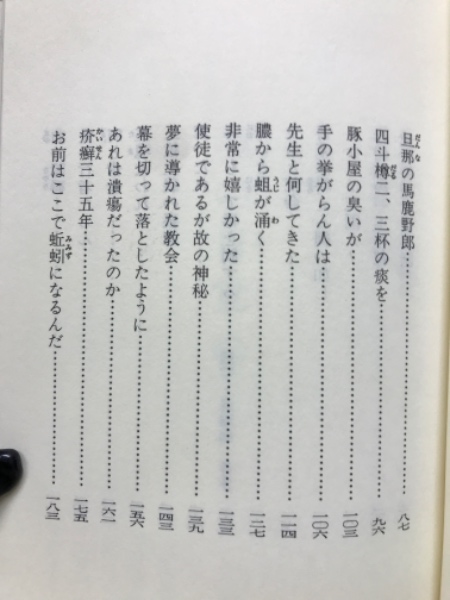 旦那の馬鹿野郎……………………八七
四斗樽二、三杯の痰を……………………九六
豚小屋の臭いが……………………一〇三
手の挙がらん人は……………………一〇六
先生と何してきた……………………一一四
膿から蛆が涌く……………………一二七
非常に嬉しかった……………………一三三
使徒であるが故の神秘……………………一三九
夢に導かれた教会……………………一四三
幕を切って落としたように……………………一五六
あれは潰瘍だったのか……………………一六一
疥癬三十五年……………………一七五
お前はここで蚯蚓になるんだ……………………一八三